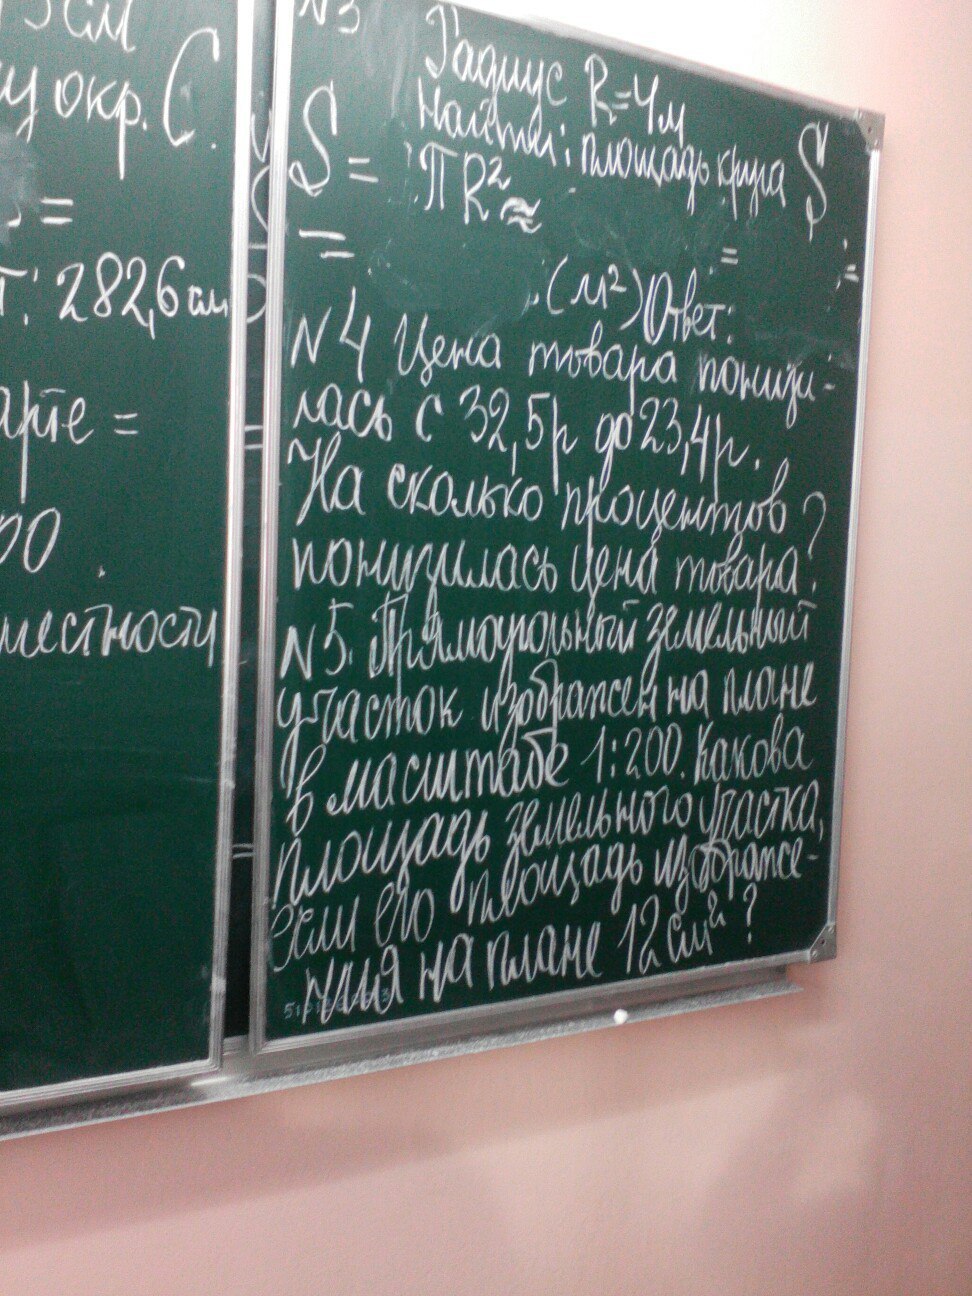 5 см
у окр. C.
=
т: 282,6 см
арте =
00
местности
N3
Радиус R=4м
Найти: площадь круга S.
S = πR² ≈
= = =
(м²) Ответ:
N4 Цена товара понизи-
лась с 32,5р до 23,4р.
На сколько процентов
понизилась цена товара?
N5. Прямоугольный земельный
участок изображен на плане
в масштабе 1:200. Какова
площадь земельного участка,
если его площадь изображе-
ния на плане 12 см²?